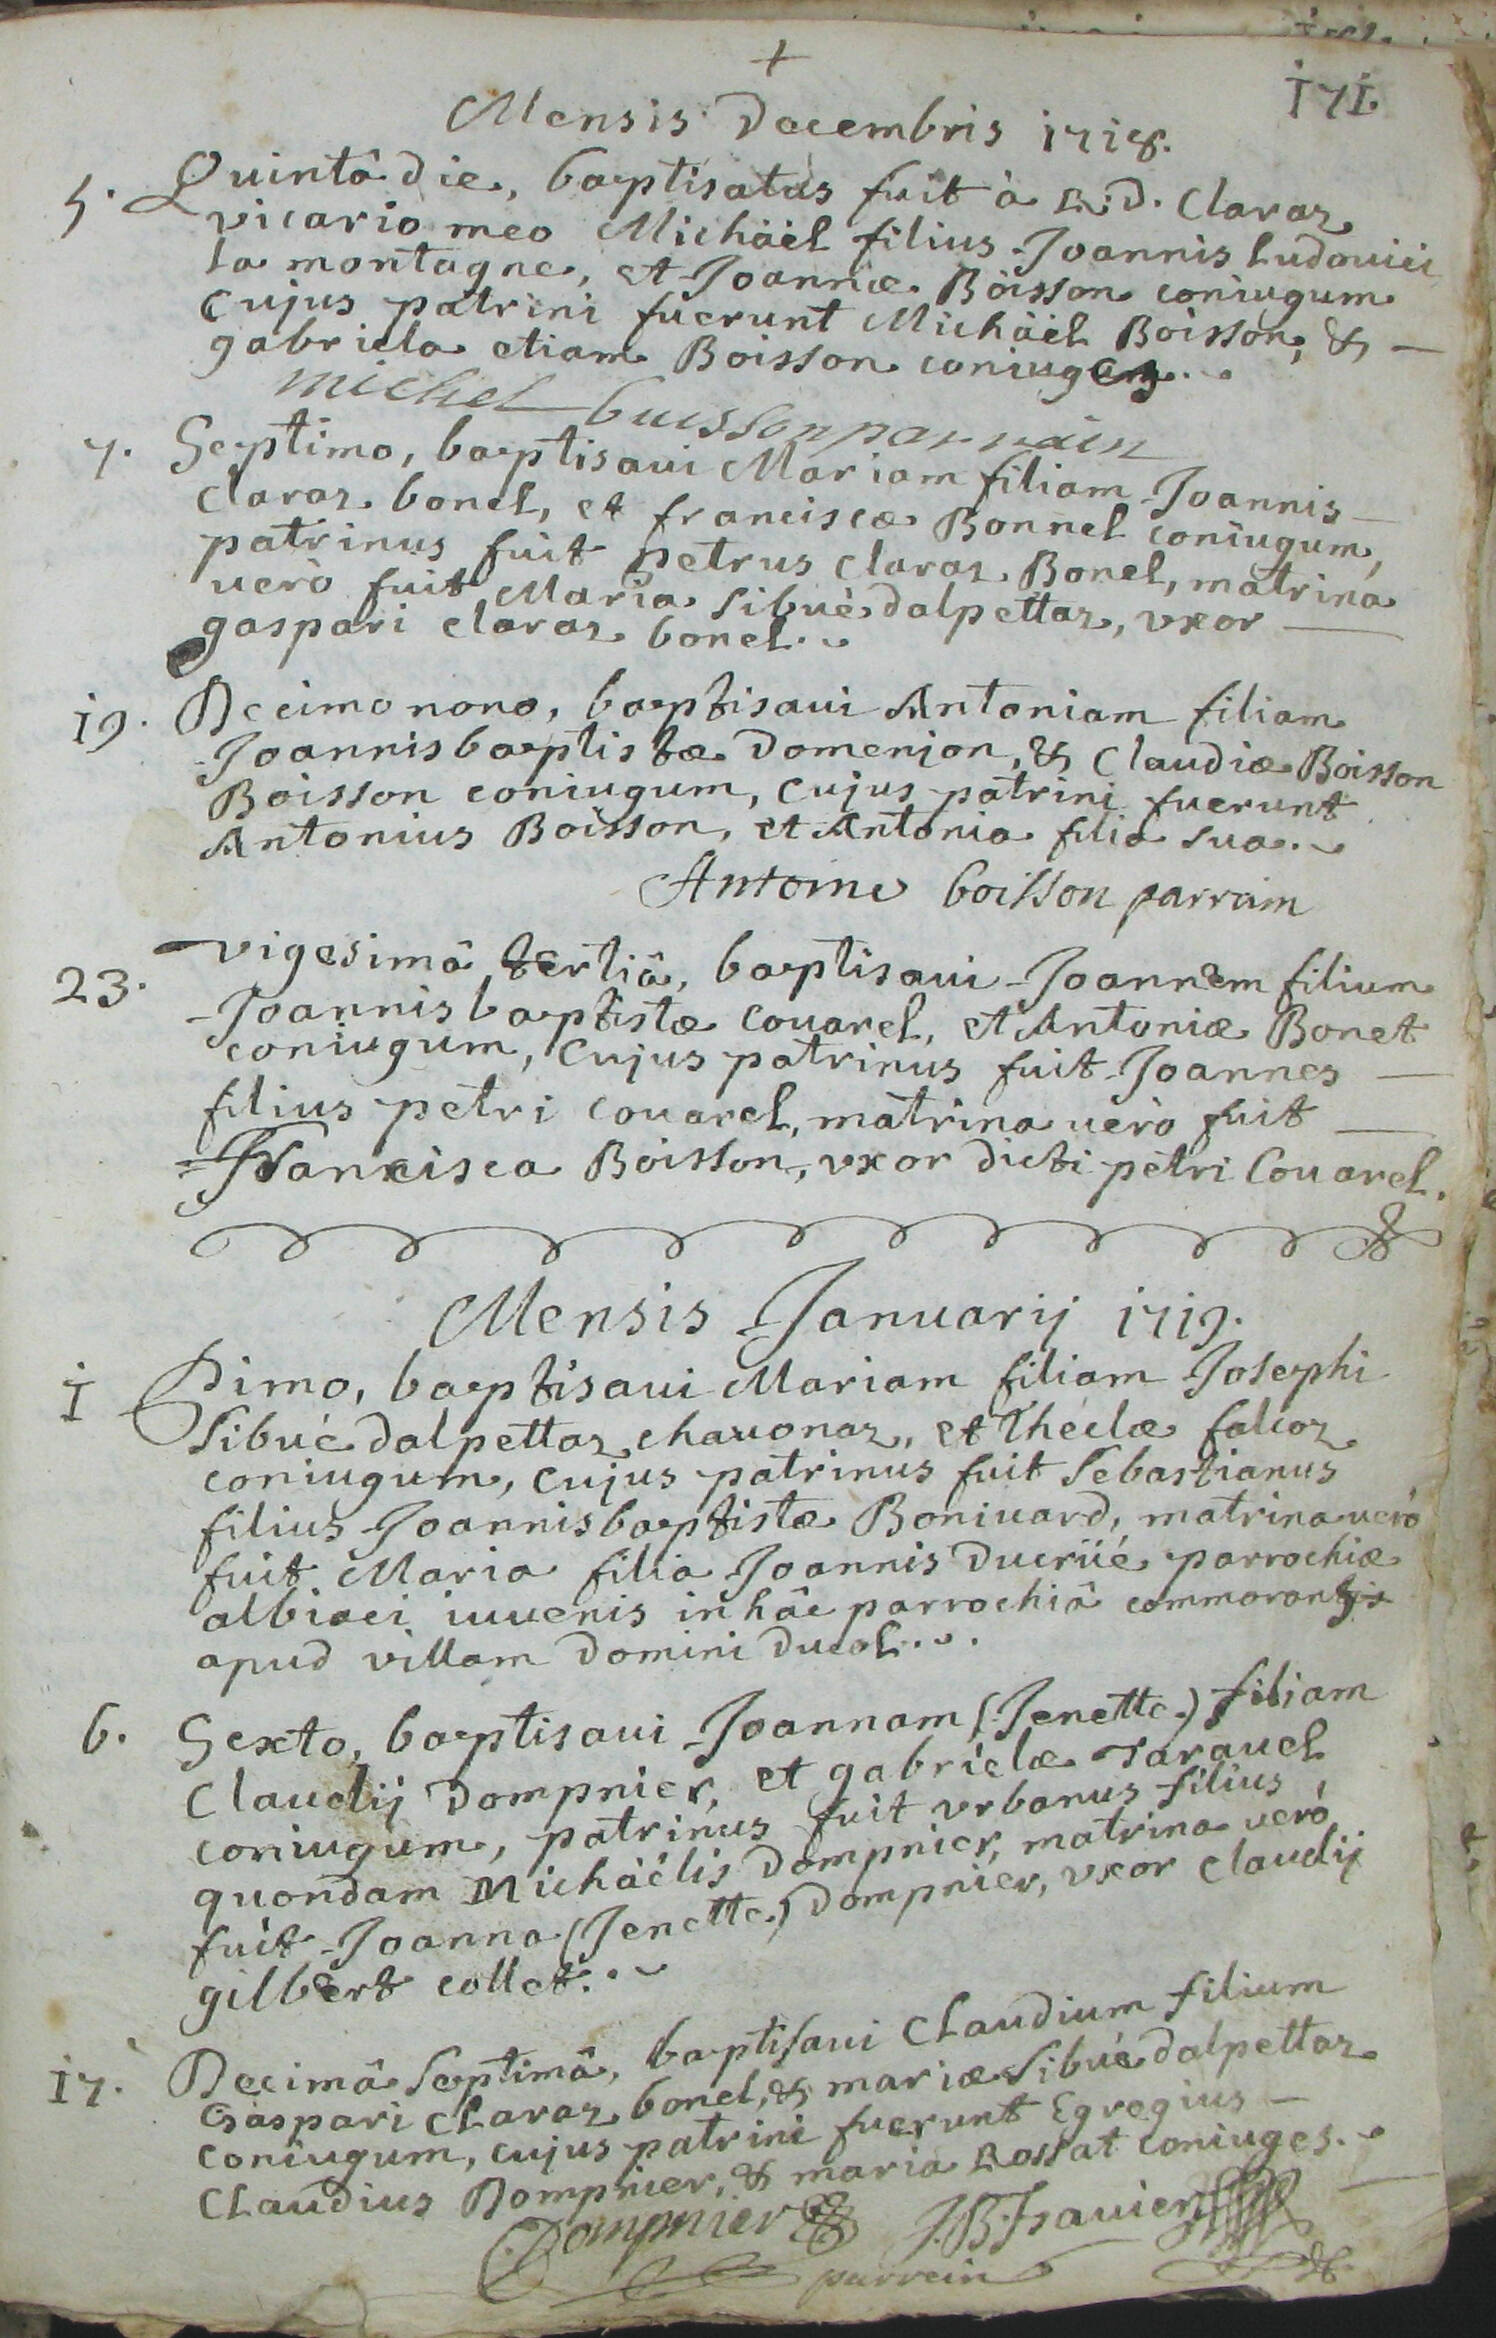 171.
Mensis Decembris 1718.
5. Quintâ die, baptisatus fuit à R.D. Claraz
vicario meo Michäel filius Joannis Ludovici
La montagne, et Joannæ Boisson coniugum
cujus patrini fuerunt Michäel Boisson, & —
gabriela etiam Boisson coniuges.
michel buisson parrain
7. Septimo, baptisaui Mariam filiam Joannis —
claraz bonel, et franciscæ Bonnel coniugum,
patrinus fuit petrus claraz Bonel, matrina
uerò fuit Maria Sibué dalpettaz, vxor —
gaspari claraz bonel.
19. Decimo nono, baptisaui Antoniam filiam
Joannisbaptistæ Domenjon, & Claudiæ Boisson
Boisson coniugum, cujus patrini fuerunt
Antonius Boisson, et Antonia filia sua.
Antoine boisson parrain
23. vigesimâ tertiâ, baptisaui Joannem filium
Joannisbaptistæ couarel, et Antoniæ Bonet
coniugum, cujus patrinus fuit Joannes —
filius petri couarel, matrina uerò fuit —
Francisca Boisson, vxor dicti petri Couarel.
Mensis Januarij 1719.
1 Pimo, baptisaui Mariam filiam Josephi
Sibué dalpettaz chauonaz, et Théclæ falcoz
coniugum, cujus patrinus fuit Sebastianus
filius Joannisbaptistæ Boniuard, matrina uerò
fuit Maria filia Joannis Ducrüé parrochiæ
albiaci iuuenis in hâc parrochiâ commorantis
apud villam Domini Ducol.
6. Sexto, baptisaui Joannam (Jenette) filiam
Claudij Dompnier, et gabrielæ Tarauel
coniugum, patrinus fuit vrbanus filius,
quondam Michäélis Dompnier, matrina uerò
fuit Joanna (Jenette) Dompnier, vxor claudij
gilbert collet.
17. Decimâ Septimâ, baptisaui Claudium filium
Gaspari Claraz bonel, & mariæ Sibué dalpettaz
coniugum, cujus patrini fuerunt Egregius —
Claudius Dompnier, & maria Rossat coniuges. —
C. Dompnier
parrein